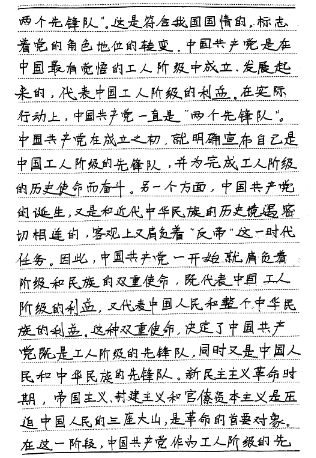 两个先锋队”。这是符合我国国情的，标志
着党的角色地位的转变。中国共产党是在
中国最有觉悟的工人阶级中成立，发展起
来的，代表中国工人阶级的利益。在实际
行动上，中国共产党一直是“两个先锋队”。
中国共产党在成立之初，就明确宣布自己是
中国工人阶级的先锋队，并为完成工人阶级
的历史使命而奋斗。另一个方面，中国共产党
的诞生，又是和近代中华民族的历史境遇密
切相连的，客观上又肩负着“反帝”这一时代
任务。因此，中国共产党一开始就肩负着
阶级和民族的双重使命，既代表中国工人
阶级的利益，又代表中国人民和整个中华民
族的利益。这种双重使命，决定了中国共产
党既是工人阶级的先锋队，同时又是中国人
民和中华民族的先锋队。新民主主义革命时
期，帝国主义、封建主义和官僚资本主义是压
迫中国人民的三座大山，是革命的首要对象。
在这一阶段，中国共产党作为工人阶级的先